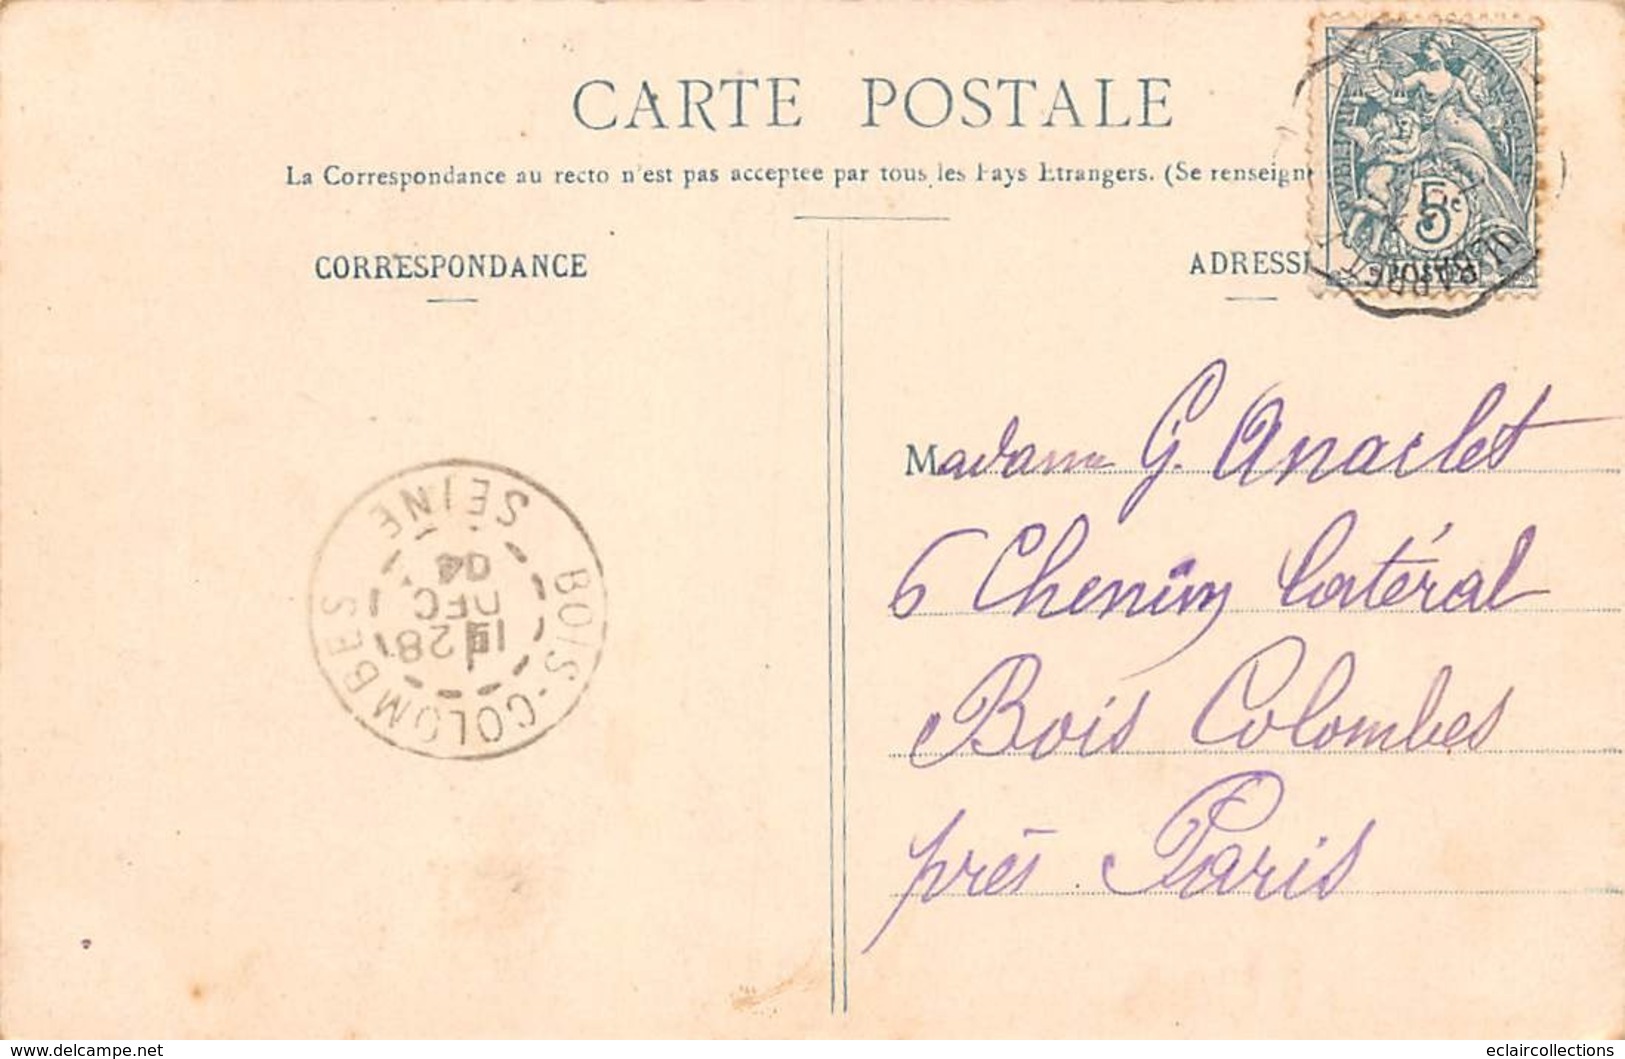 CARTE POSTALE
La Correspondance au recto n'est pas acceptee par tous les Pays Etrangers. (Se renseign
CORRESPONDANCE
ADRESS
REPUBLIQUE FRANÇAISE
5c
Madame G. Anaclet
6 Chemin Latéral
Bois Colombes
près Paris
BOIS-COLOMBES
SEINE
28
DEC
04
www.delcampe.net
eclaircollections